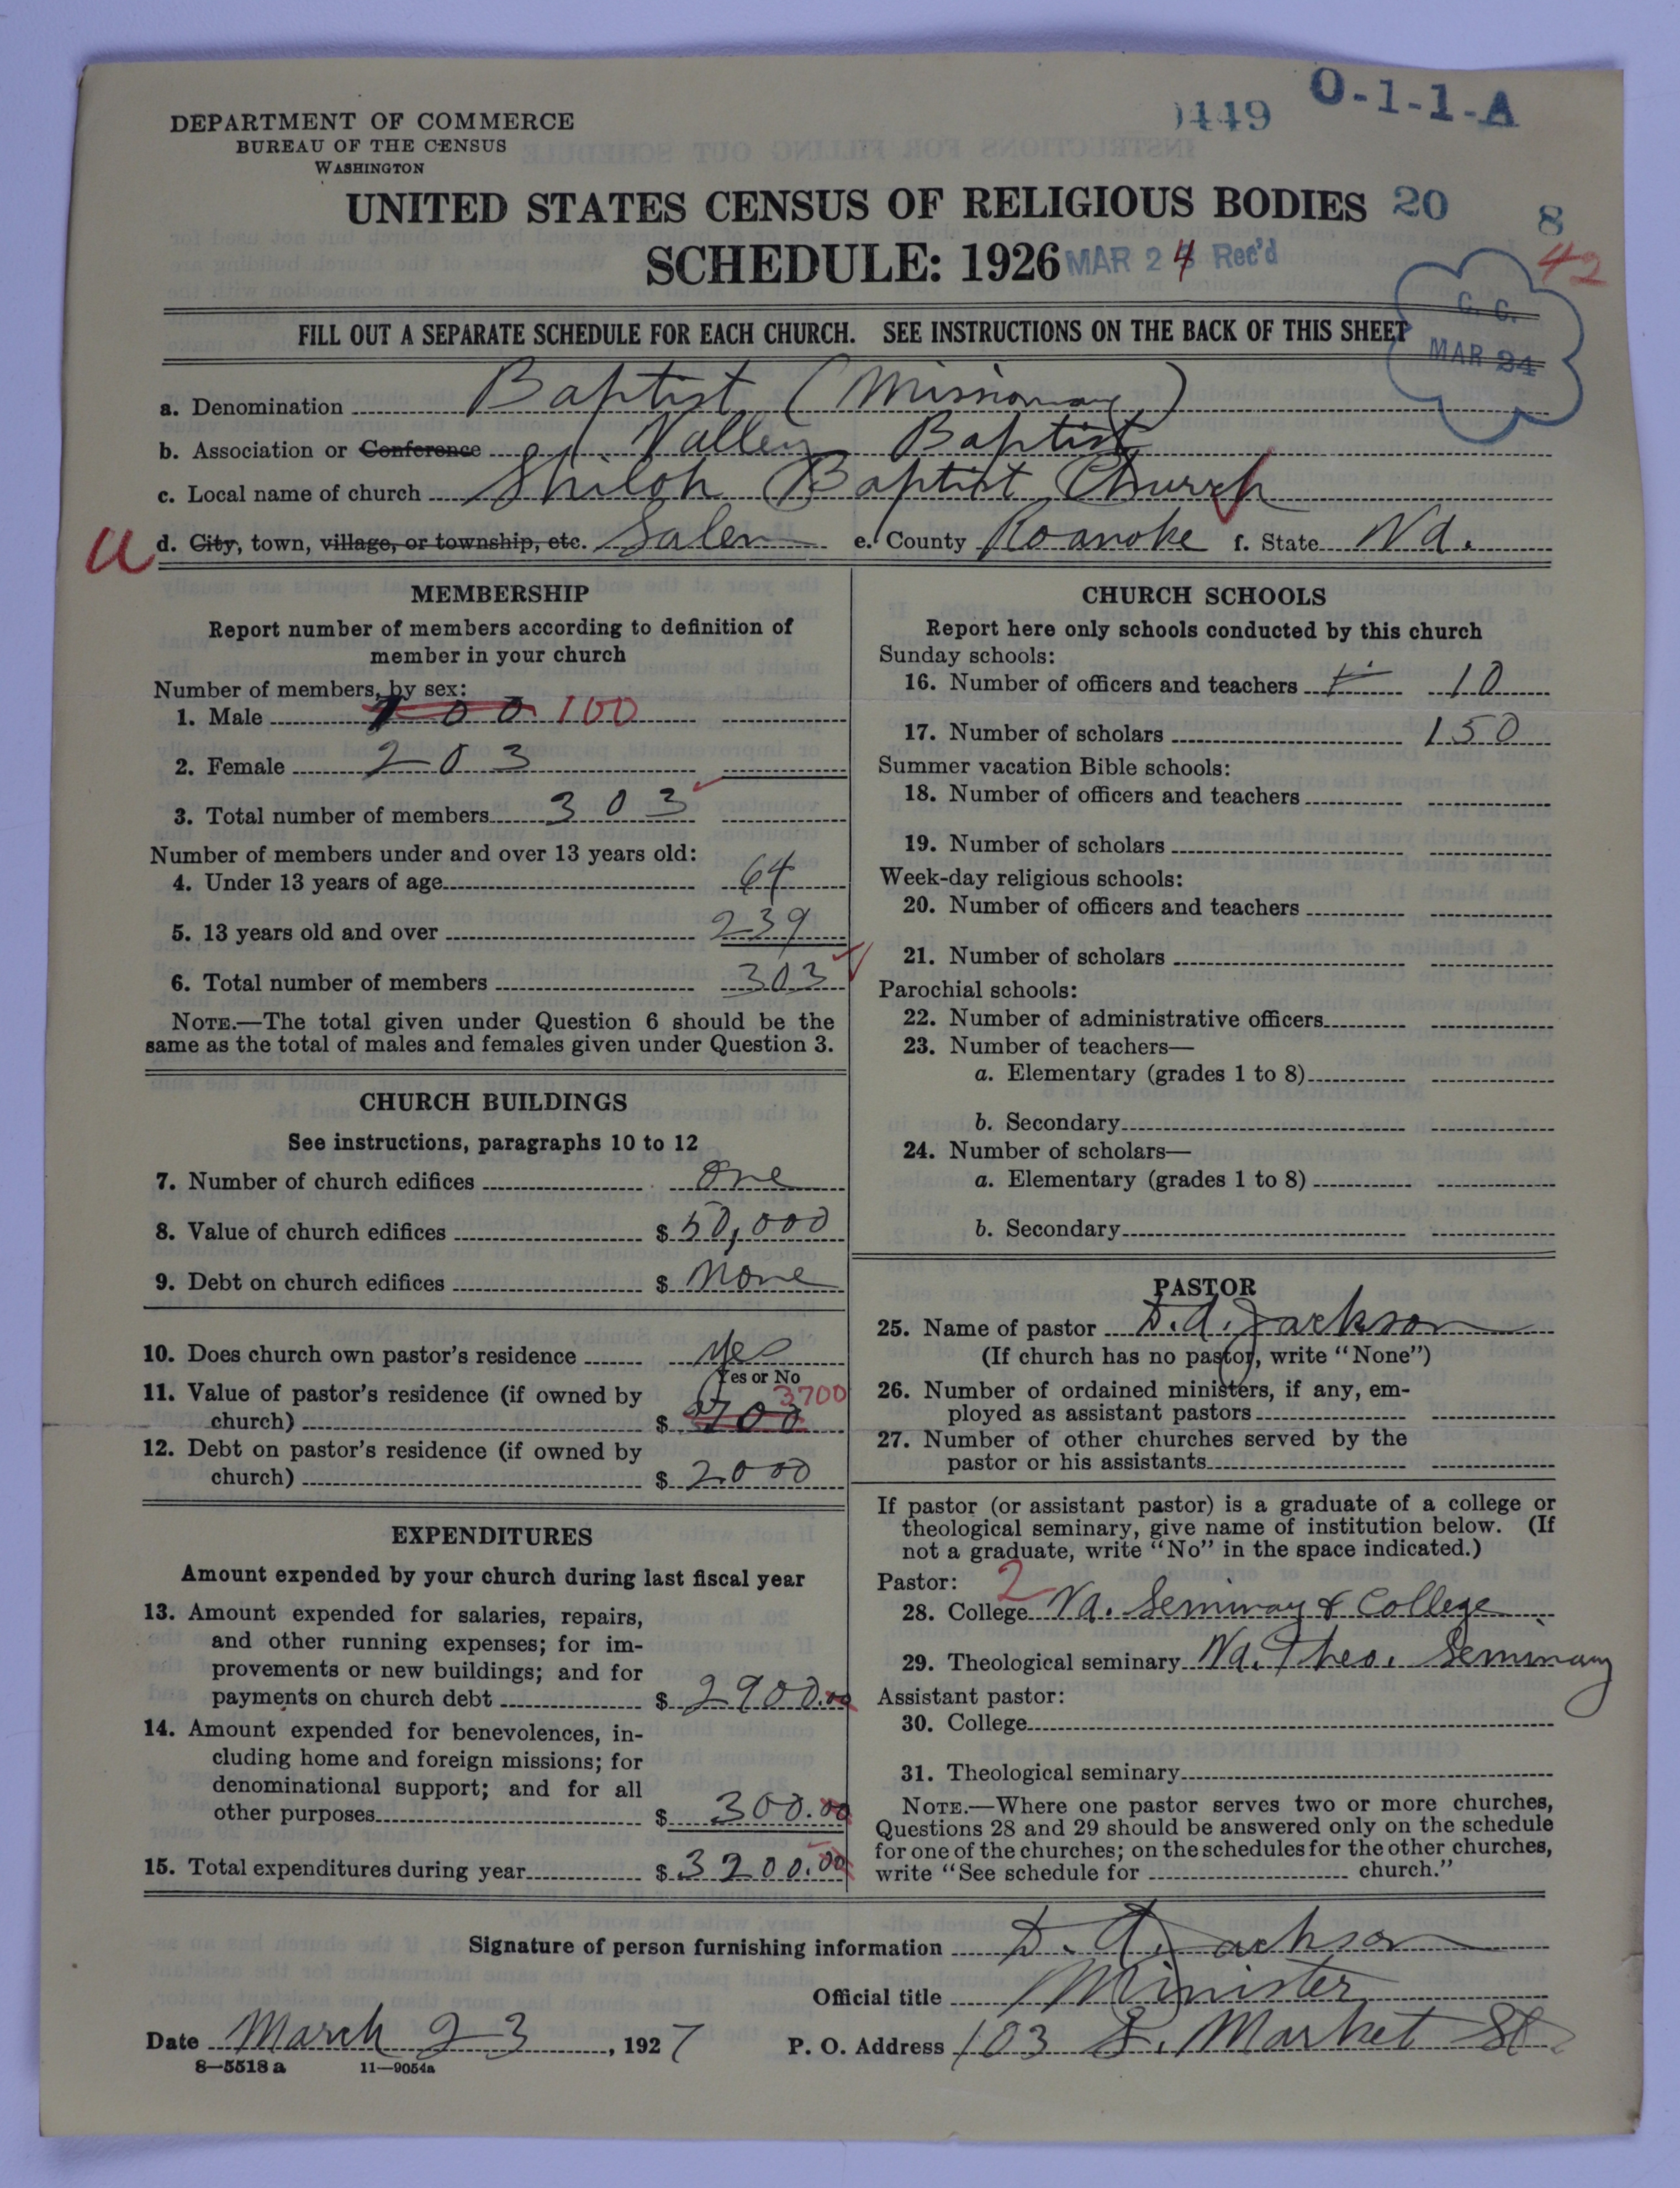 DEPARTMENT OF COMMERCE
BUREAU OF THE CENSUS
WASHINGTON
449 O-1-1-A
UNITED STATES CENSUS OF RELIGIOUS BODIES 20 8
SCHEDULE: 1926 MAR 24 Rec'd 42
FILL OUT A SEPARATE SCHEDULE FOR EACH CHURCH. SEE INSTRUCTIONS ON THE BACK OF THIS SHEET
C. C.
MAR 24
a. Denomination Baptist (Missionary)
b. Association or Conference Valley Baptist
c. Local name of church Shiloh Baptist Church
d. City, town, village, or township, etc. Salem e. County Roanoke f. State Va.
MEMBERSHIP
Report number of members according to definition of
member in your church
Number of members, by sex:
1. Male 100 100
2. Female 203
3. Total number of members 303
Number of members under and over 13 years old:
4. Under 13 years of age 64
5. 13 years old and over 239
6. Total number of members 303
NOTE.—The total given under Question 6 should be the
same as the total of males and females given under Question 3.
CHURCH BUILDINGS
See instructions, paragraphs 10 to 12
7. Number of church edifices one
8. Value of church edifices $ 50,000
9. Debt on church edifices $ None
10. Does church own pastor's residence yes
Yes or No
11. Value of pastor's residence (if owned by
church) $ 3700
12. Debt on pastor's residence (if owned by
church) $ 2000
EXPENDITURES
Amount expended by your church during last fiscal year
13. Amount expended for salaries, repairs,
and other running expenses; for im-
provements or new buildings; and for
payments on church debt $ 2900.00
14. Amount expended for benevolences, in-
cluding home and foreign missions; for
denominational support; and for all
other purposes $ 300.00
15. Total expenditures during year $ 3200.00
CHURCH SCHOOLS
Report here only schools conducted by this church
Sunday schools:
16. Number of officers and teachers 10
17. Number of scholars 150
Summer vacation Bible schools:
18. Number of officers and teachers
19. Number of scholars
Week-day religious schools:
20. Number of officers and teachers
21. Number of scholars
Parochial schools:
22. Number of administrative officers
23. Number of teachers—
a. Elementary (grades 1 to 8)
b. Secondary
24. Number of scholars—
a. Elementary (grades 1 to 8)
b. Secondary
PASTOR
25. Name of pastor D. A. Jackson
(If church has no pastor, write "None")
26. Number of ordained ministers, if any, em-
ployed as assistant pastors
27. Number of other churches served by the
pastor or his assistants
If pastor (or assistant pastor) is a graduate of a college or
theological seminary, give name of institution below. (If
not a graduate, write "No" in the space indicated.)
Pastor: 2
28. College Va. Seminay & College
29. Theological seminary Va. Theo. Seminary
Assistant pastor:
30. College
31. Theological seminary
NOTE.—Where one pastor serves two or more churches,
Questions 28 and 29 should be answered only on the schedule
for one of the churches; on the schedules for the other churches,
write "See schedule for church."
Signature of person furnishing information D. A. Jackson
Official title Minister
Date March 23, 1927 P. O. Address 103 S. Market St
8—5518 a 11—9054a